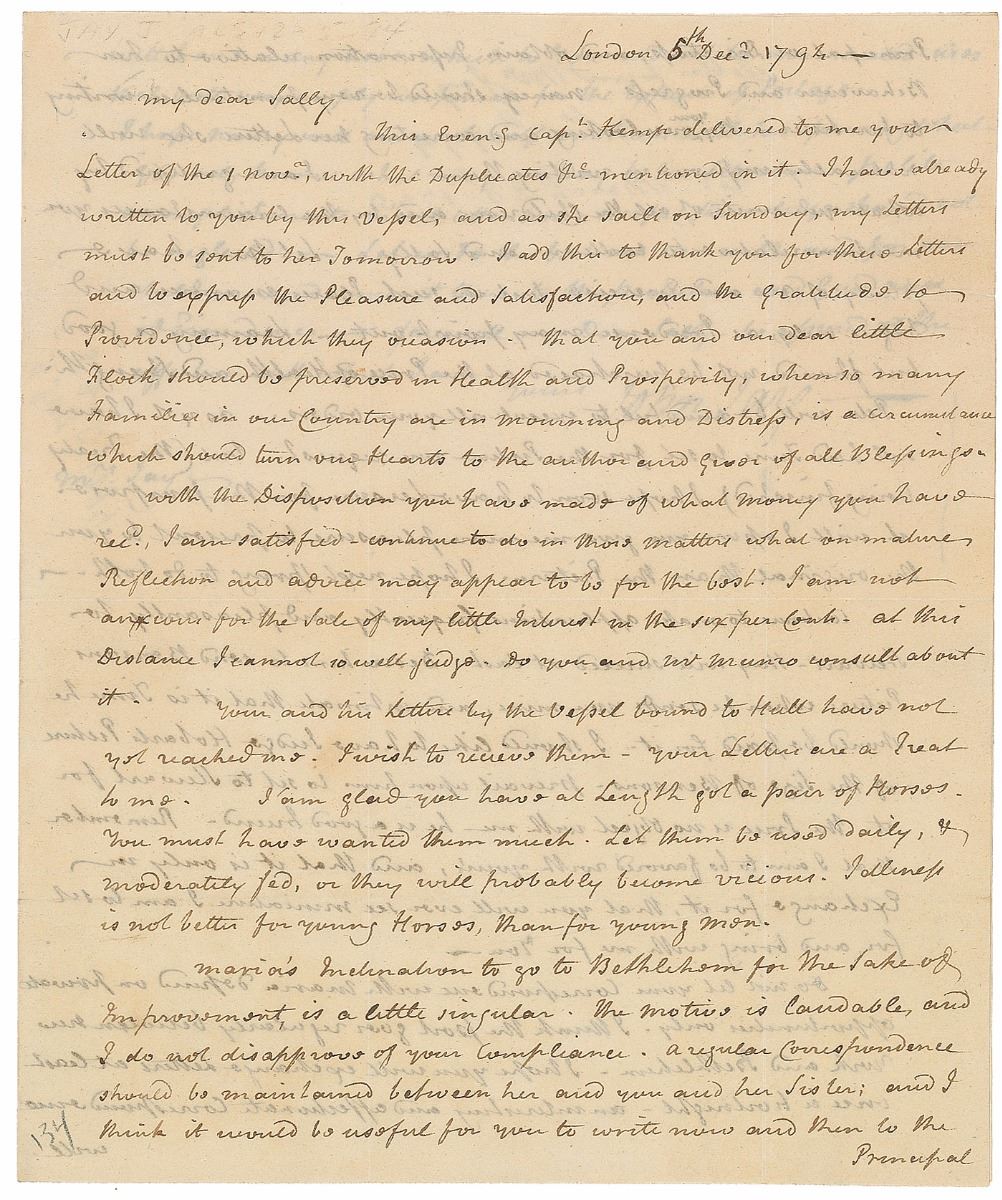 London 5th Decr. 1794 —
My dear Sally
This Eveng. Capt. Kemp delivered to me your
Letter of the 1 Novr., with the Duplicates &c. mentioned in it. I have already
written to you by this Vessel, and as she sails on Sunday, my Letters
must be sent to her Tomorrow. I add this to thank you for these Letters
and to express the Pleasure and Satisfaction, and the Gratitude to
Providence, which they occasion. That you and our dear little
Flock should be preserved in Health and Prosperity, when so many
Families in our Country are in mourning and Distress, is a circumstance
which should turn our Hearts to the author and Giver of all Blessings.
with the Disposition you have made of what money you have
recd., I am satisfied – continue to do in those matters what on mature
Reflection and advice may appear to be for the best. I am not
anxious for the Sale of my little Interest in the six per Cents – at this
Distance I cannot so well judge. Do you and mr Munro consult about
it. Your and his Letters by the Vessel bound to Hull have not
yet reached me. I wish to recieve them – your Letters are a Treat
to me. I am glad you have at Length got a pair of Horses.
You must have wanted them much. Let them be used daily, &
moderately fed, or they will probably become vicious. Idleness
is not better for young Horses, than for young men.
Maria's Inclination to go to Bethlehem for the Sake of
Improvement, is a little singular. The motive is laudable, and
I do not disapprove of your Compliance. A regular Correspondence
should be maintained between her and you and her Sister; and I
think it would be useful for you to write now and then to the
Principal
134